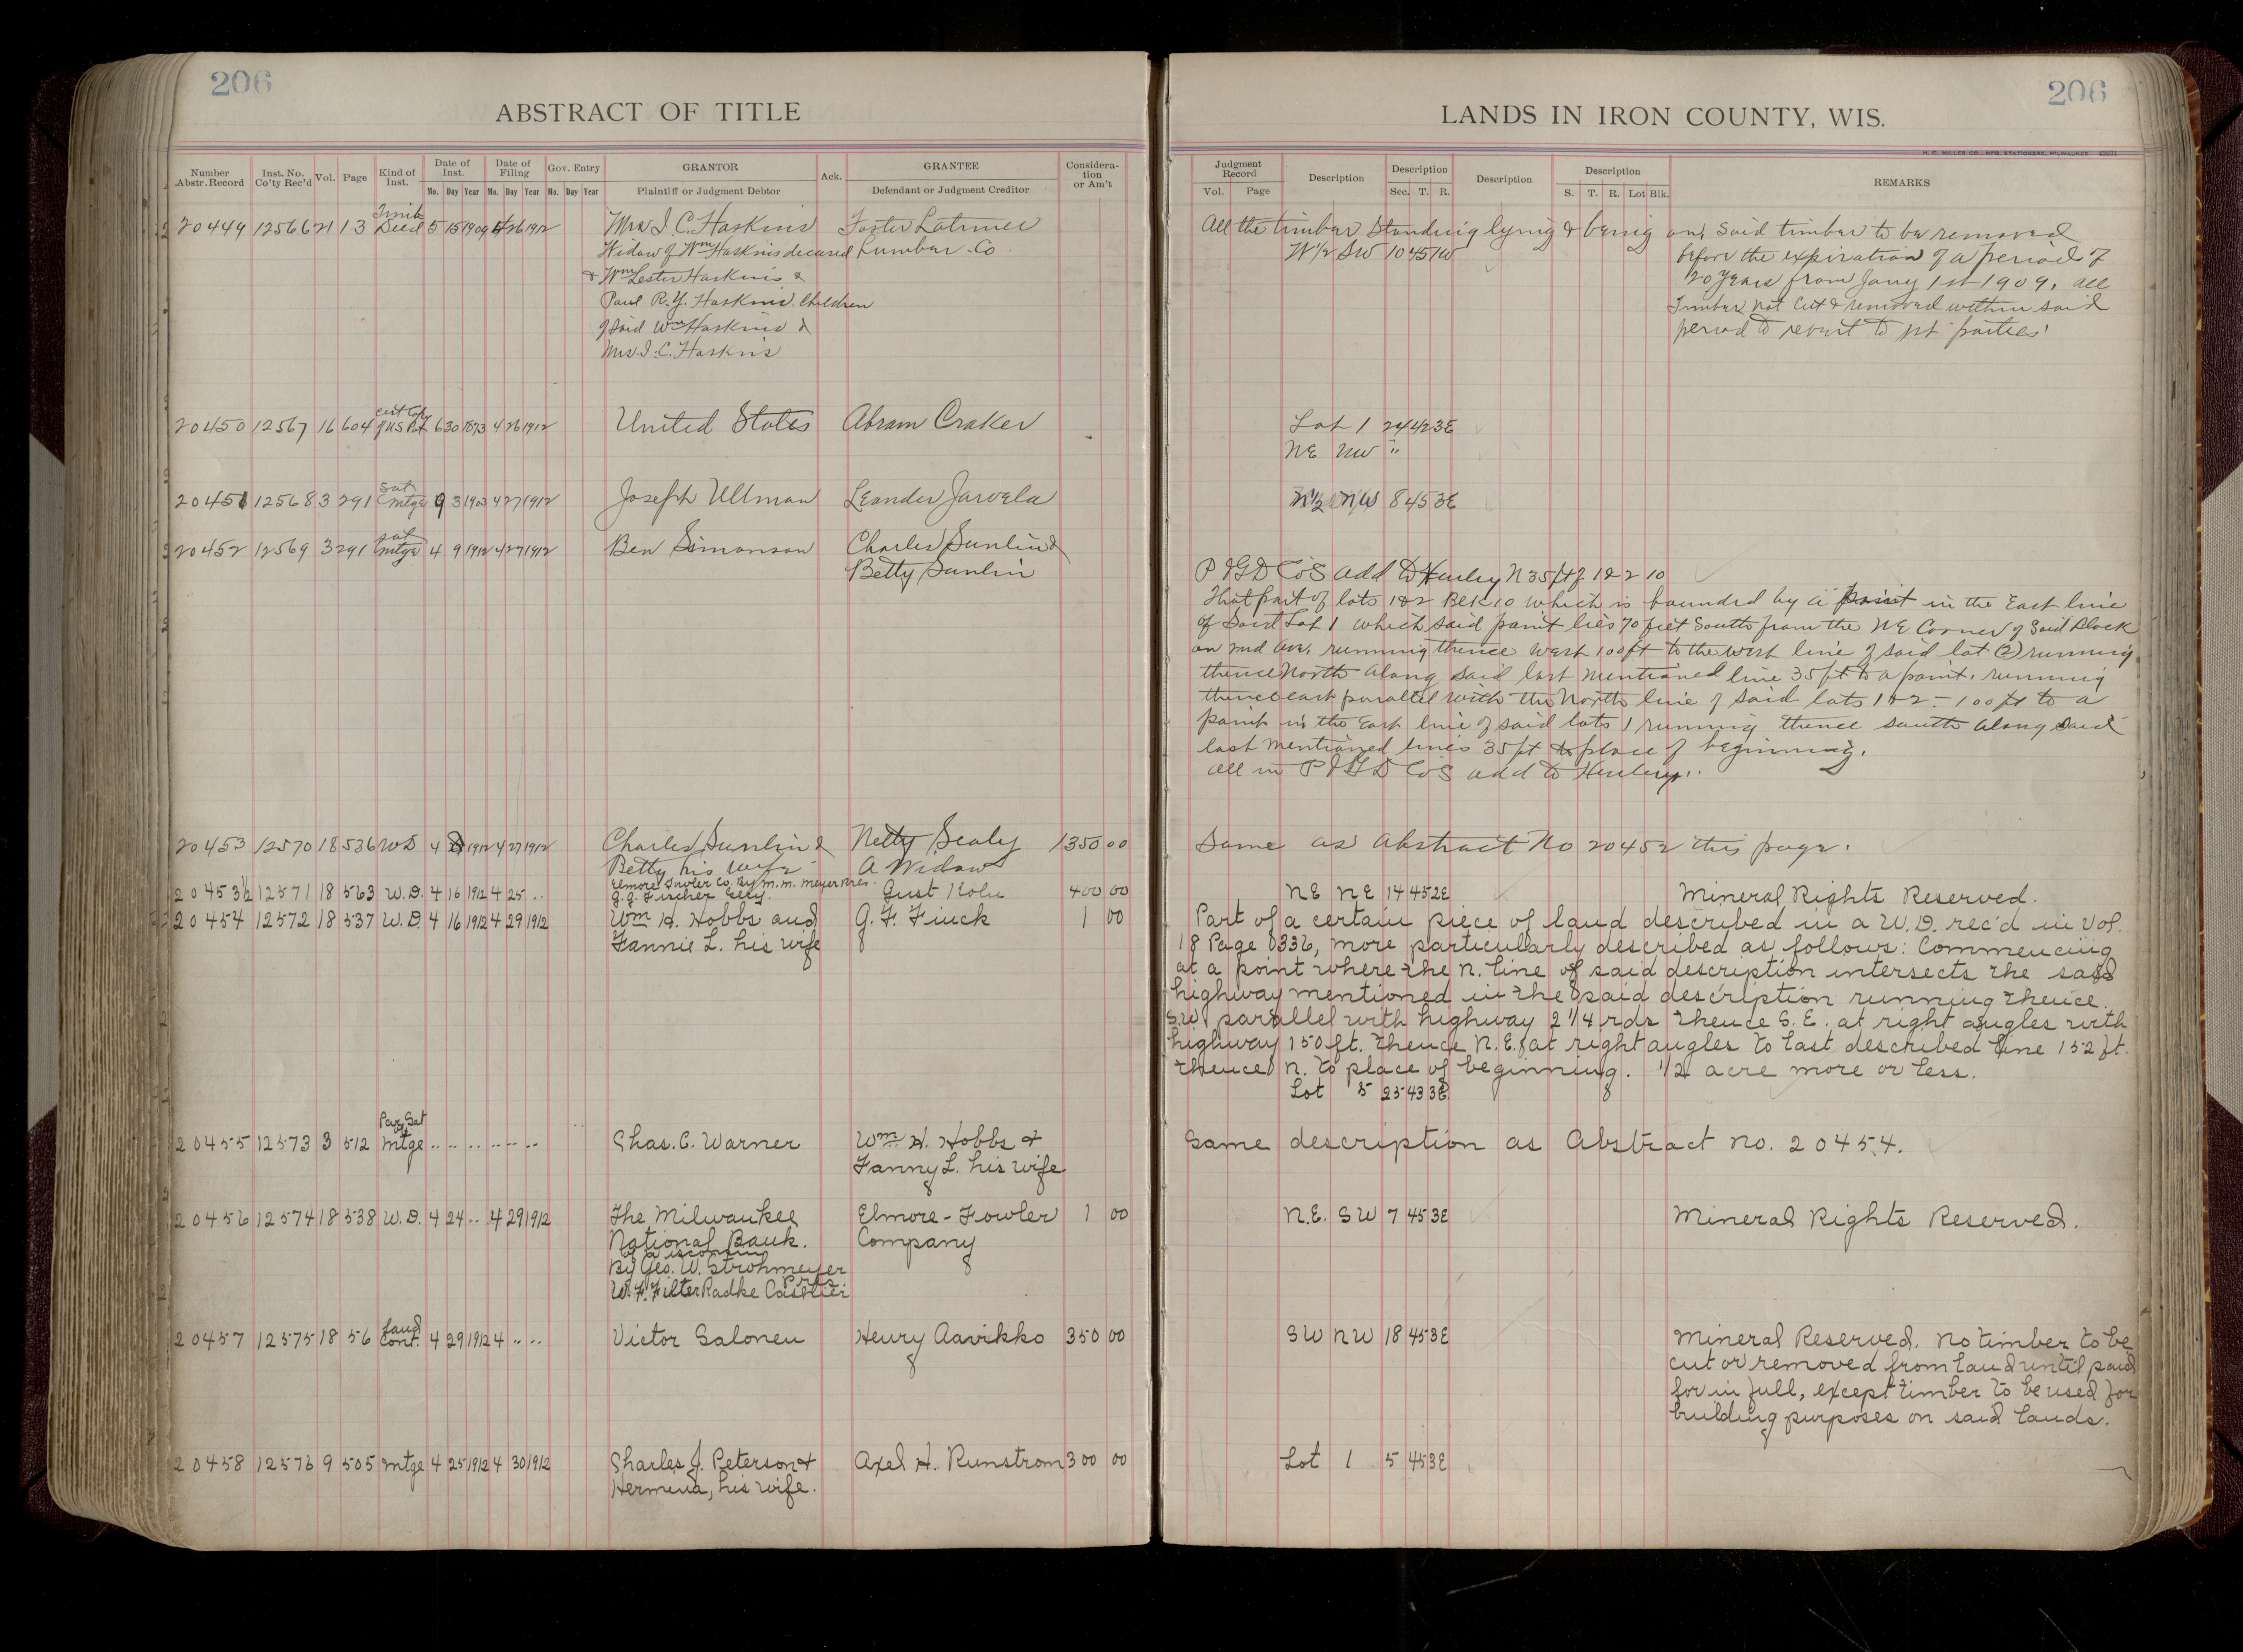 206
ABSTRACT OF TITLE
Number Abstr. Record | Inst. No. Co'ty Rec'd | Vol. | Page | Kind of Inst. | Date of Inst. Mo. Day Year | Date of Filing Mo. Day Year | Gov. Entry Mo. Day Year | GRANTOR Plaintiff or Judgment Debtor | Ack. | GRANTEE Defendant or Judgment Creditor | Considera-tion or Am't
20449 12566 21 13 Timb Deed 5 15 1909 4 26 1912 Mrs I. C. Haskins Foster Latimer
Widow of Wm Haskins deceased Lumber Co.
& Wm Lester Haskins &
Paul R. Y. Haskins Children
of said Wm Haskins &
Mrs. I. C. Haskins
20450 12567 16 604 Cert Copy of US Pat 6 30 1873 4 26 1912 United States Abram Craker
20451 12568 3 291 Sat mtge 9 3 1903 4 27 1912 Joseph Ullman Leander Jarvela
20452 12569 3 291 Sat mtge 4 9 1912 4 27 1912 Ben Simonson Charles Sunlin &
Betty Sunlin
20453 12570 18 536 WD 4 1912 4 27 1912 Charles Sunlin & Netty Sealy 1350 00
Betty his wife A Widow
20453½ 12571 18 563 W.D. 4 16 1912 4 25 .. Elmore Fowler Co. By M. M. Meyer Pres. Gust Kolu 400 00
G. G. Fischer Secy.
20454 12572 18 537 W.D. 4 16 1912 4 29 1912 Wm H. Hobbs and G. F. Finck 1 00
Fannie L. his wife
20455 12573 3 512 Par. Sat of mtge .. .. .. .. .. .. Chas. C. Warner Wm H. Hobbs &
Fanny L. his wife
20456 12574 18 538 W.D. 4 24 .. 4 29 1912 The Milwaukee Elmore-Fowler 1 00
National Bank. Company
of Wisconsin
By Geo. W. Strohmeyer
Pres
W. F. Filter Radke Cashier
20457 12575 18 56 Land Cont. 4 29 1912 4 .. .. Victor Salonen Henry Aavikko 350 00
20458 12576 9 505 mtge 4 25 1912 4 30 1912 Charles J. Peterson & Axel H. Runstrom 300 00
Hermina, his wife.
206
LANDS IN IRON COUNTY, WIS.
H. C. MILLER CO., MFG. STATIONERS, MILWAUKEE
Judgment Record Vol. Page | Description | Description Sec. T. R. | Description | Description S. T. R. Lot Blk. | REMARKS
All the timber standing lying & being on, Said timber to be removed
W½ SW 10 45 1W before the expiration of a period of
20 years from Jany 1st 1909. All
Timber not Cut & removed within said
period to revert to 1st parties.
Lot 1 24 42 3E
NE NW "
N½ NW 8 45 3E
P I G D Co's add to Hurley N 35 ft of 1 & 2 10
That part of lots 1 & 2 Blk 10 which is bounded by a point in the East line
of Said Lot 1 which said point lies 70 feet South from the NE Corner of Said Block
on 2nd Ave, running thence West 100 ft to the West line of said lot (2) running
thence North along said last mentioned line 35 ft to a point, running
thence East parallel with the North line of said lots 1 & 2 - 100 ft to a
point in the East line of said lots 1 running thence south along said
last mentioned lines 35 ft to place of beginning.
All in P I G D Co's add to Hurley.
Same as Abstract No 20452 this page.
NE NE 14 45 2E Mineral Rights Reserved.
Part of a certain piece of land described in a W.D. rec'd in Vol.
18 Page 336, more particularly described as follows: Commencing
at a point where the N. line of said description intersects the said
highway mentioned in the said description running thence
S.W. parallel with highway 2¼ rds thence S. E. at right angles with
highway 150 ft. thence N. E. at right angles to last described line 152 ft.
thence N. to place of beginning. ½ acre more or less.
Lot 5 25 43 3E
Same description as Abstract No. 20454.
N.E. SW 7 45 3E Mineral Rights Reserved.
SW NW 18 45 3E Mineral Reserved. No timber to be
cut or removed from land until paid
for in full, except timber to be used for
building purposes on said lands.
Lot 1 5 45 3E